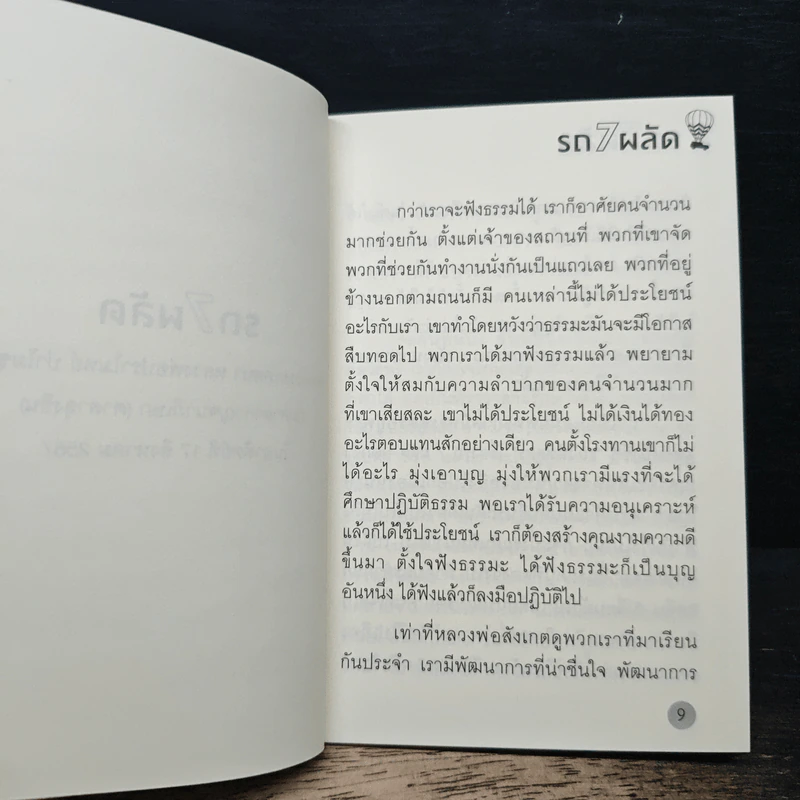 รถ 7 ผลัด
กว่าเราจะฟังธรรมได้ เราก็อาศัยคนจำนวน
มากช่วยกัน ตั้งแต่เจ้าของสถานที่ พวกที่เขาจัด
พวกที่ช่วยกันทำงานนั่งกันเป็นแถวเลย พวกที่อยู่
ข้างนอกตามถนนก็มี คนเหล่านี้ไม่ได้ประโยชน์
อะไรกับเรา เขาทำโดยหวังว่าธรรมะมันจะมีโอกาส
สืบทอดไป พวกเราได้มาฟังธรรมแล้ว พยายาม
ตั้งใจให้สมกับความลำบากของคนจำนวนมาก
ที่เขาเสียสละ เขาไม่ได้ประโยชน์ ไม่ได้เงินได้ทอง
อะไรตอบแทนสักอย่างเดียว คนตั้งโรงทานเขาก็ไม่
ได้อะไร มุ่งเอาบุญ มุ่งให้พวกเรามีแรงที่จะได้
ศึกษาปฏิบัติธรรม พอเราได้รับความอนุเคราะห์
แล้วก็ได้ใช้ประโยชน์ เราก็ต้องสร้างคุณงามความดี
ขึ้นมา ตั้งใจฟังธรรมะ ได้ฟังธรรมะก็เป็นบุญ
อันหนึ่ง ได้ฟังแล้วก็ลงมือปฏิบัติไป
เท่าที่หลวงพ่อสังเกตดูพวกเราที่มาเรียน
กันประจำ เรามีพัฒนาการที่น่าชื่นใจ พัฒนาการ
9